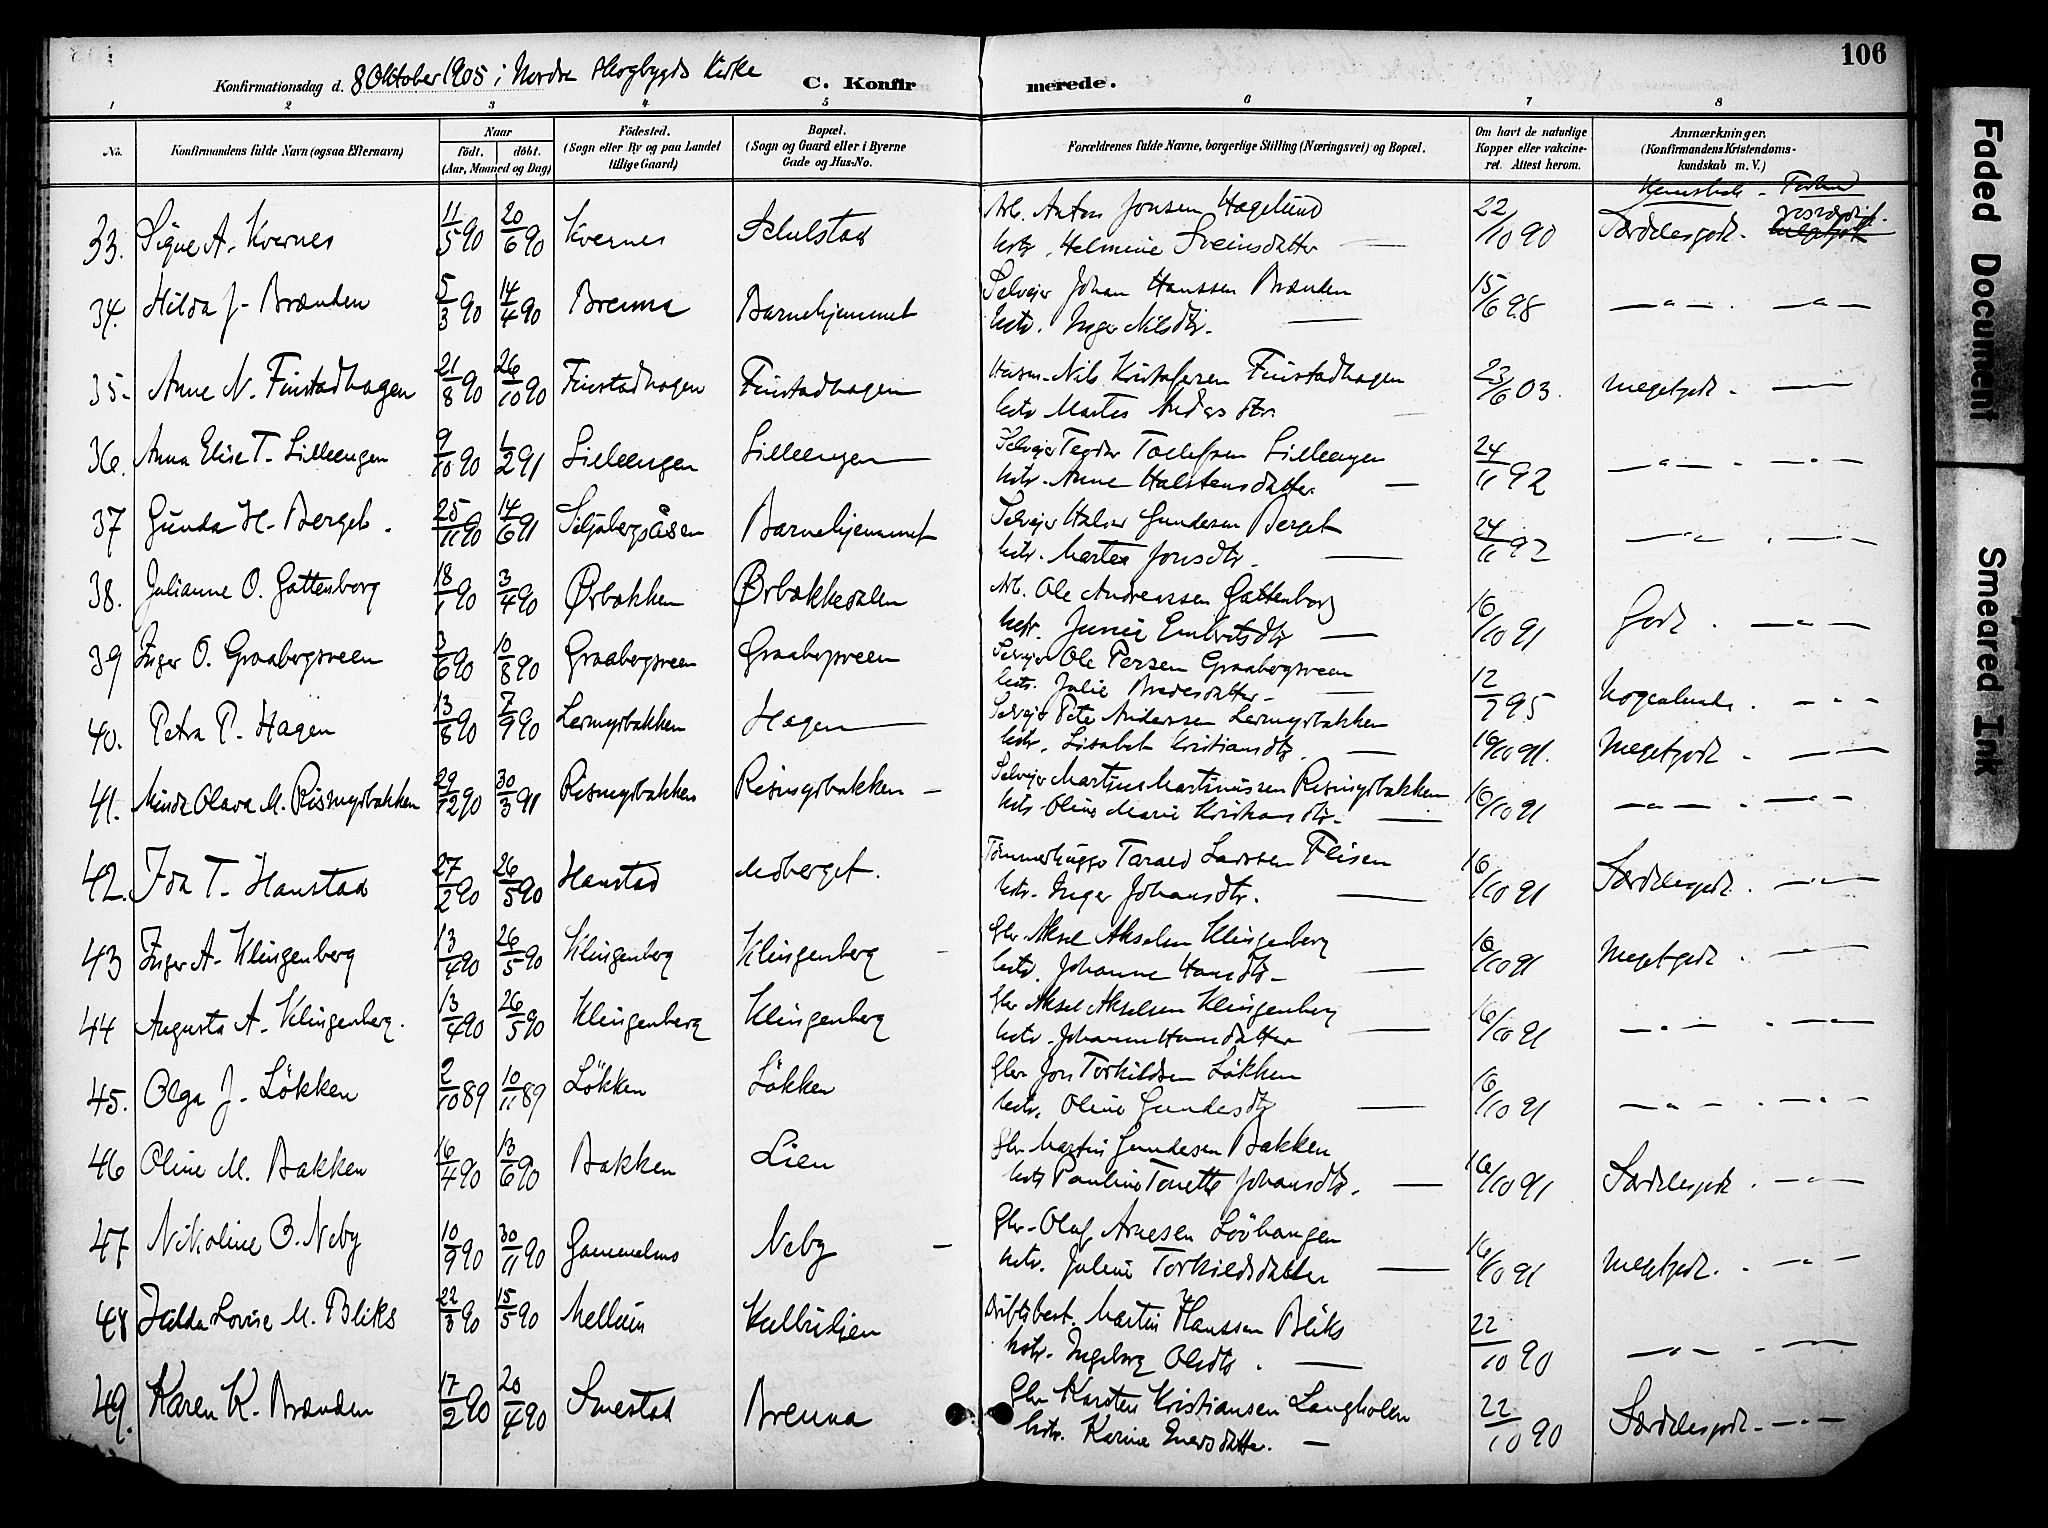 106
Konfirmationsdag d. 8 Oktober 1905 i Nordre Skogbygds Kirke
C. Konfirmerede.
1 2 3 4 5 6 7 8
No. Konfirmandens fulde Navn (ogsaa Efternavn) Naar födt. döbt. (Aar, Maaned og Dag) Födested. (Sogn eller By og paa Landet tillige Gaard) Bopæl. (Sogn og Gaard eller i Byerne Gade og Hus-No. Forældrenes fulde Navne, borgerlige Stilling (Næringsvei) og Bopæl. Om havt de naturlige Kopper eller vakcineret. Attest herom. Anmærkninger. (Konfirmandens Kristendomskundskab m. V.)
33. Signe A. Kvernes 11/5 90 20/6 90 Kvernes Schulstad Arb. Anton Jonsen Hagelund
Hstr. Helmine Sveinsdatter — 22/10 90 Særdelesgodt.
34. Hilda J. Brænden 5/3 90 14/4 90 Brenna Barnehjemmet Selveier Johan Hanssen Brænden
Hstr. Inger Nilsdtr. — 15/6 98 — " — . — " —
35. Anne N. Finstadhagen 21/8 90 26/10 90 Finstadhagen Finstadhagen Husm. Nils Kristofersen Finstadhagen
Hstr Martea Andersdtr. 23/6 03. Megetgodt. —
36. Anna Elise T. Lilleengen 9/10 90 1/2 91 Lilleengen Lilleengen Selveier Teodor Tollefsen Lilleengen
Hstr. Anne Halstensdatter. — 24/11 92 — " — . — " —
37 Gunda H. Berget. 25/11 90 14/6 91 Seljabergsåsen Barnehjemmet Selveier Halvor Gundersen Berget
Hstr. Martea Jonsdtr. — 24/11 92 — " — . — " —
38. Julianne O. Gattenborg 18/1 90 3/4 90 Ørbakken Ørbækkedalen Arb. Ole Andreassen Gattenborg
Hstr. Junie Embretsdtr — 16/10 91 Godt. — " —
39 Inger O. Graabergsveen 3/6 90 10/8 90 Graabergsveen Graabergsveen Selveier Ole Persen Graabergsveen
Hstr. Julie Bredesdatter — 12/7 95 Nogenlunde. — " —
40. Petra P. Hagen 13/8 90 7/9 90 Lermyrbakken Hagen Selveier Peter Anderssen Lermyrbakken
Hstr. Lisabet Kristiansdtr. — 16/10 91. Megetgodt. — " —
41. Minda Olava M. Rismyrbakken 29/12 90 30/3 91 Rismyrbakken Rismyrbakken — Selveier Martinus Martinussen Rismyrbakken
Hstr Oline Marie Kristiansdtr. — 16/10 91 — " — . — " —
42. Ida T. Hanstad 27/2 90 26/5 90 Hanstad Nedberget. Tømmerhugger Tarald Larssen Fleisen
Hstr. Inger Johansdtr. — 16/10 91 Særdelesgodt. — " —
43 Inger A. Klingenberg 13/4 90 26/5 90 Klingenberg Klingenberg Gbr Aksel Akselsen Klingenberg
Hstr. Johanne Hansdtr — 16/10 91 Megetgodt. — " —
44 Augusta A. Klingenberg. 13/4 90 26/5 90 Klingenberg Klingenberg Gbr Aksel Akselsen Klingenberg
Hstr. Johanne Hansdatter — 16/10 91 — " — . — " —
45. Olga J. Lökken 2/10 89 10/11 89 Lökken Lökken Gbr. Jon Torkildsen Lökken
Hstr. Oline Gundersdtr — 16/10 91 — " — . — " —
46 Oline M. Bakken 16/4 90 13/6 90 Bakken Lien Gbr Martin Gundersen Bakken
Hstr Pauline Tonette Johansdtr. — 16/10 91 Særdelesgodt. — " —
47 Nikoline O. Neby 10/9 90 30/11 90 Gammelmo Neby — Gbr. Olaf Arnesen Lövhaugen
Hstr. Juline Torkildsdatter — 16/10 91 Megetgodt. — " —
48 Hilda Lovise M. Bliks 22/3 90 15/5 90 Mellum Kulbulien Driftsbest. Martin Hanssen Bliks
Hstr. Ingeborg Olsdtr. — 22/10 90 — " — . — " —
49. Karen K. Brænden 17/2 90 20/4 90 Smestad Brenna Gbr. Karsten Kristiansen Langholen
Hstr. Karine Enersdatter. — 22/10 90 Særdelesgodt. — " —
Faded Document
Smeared Ink